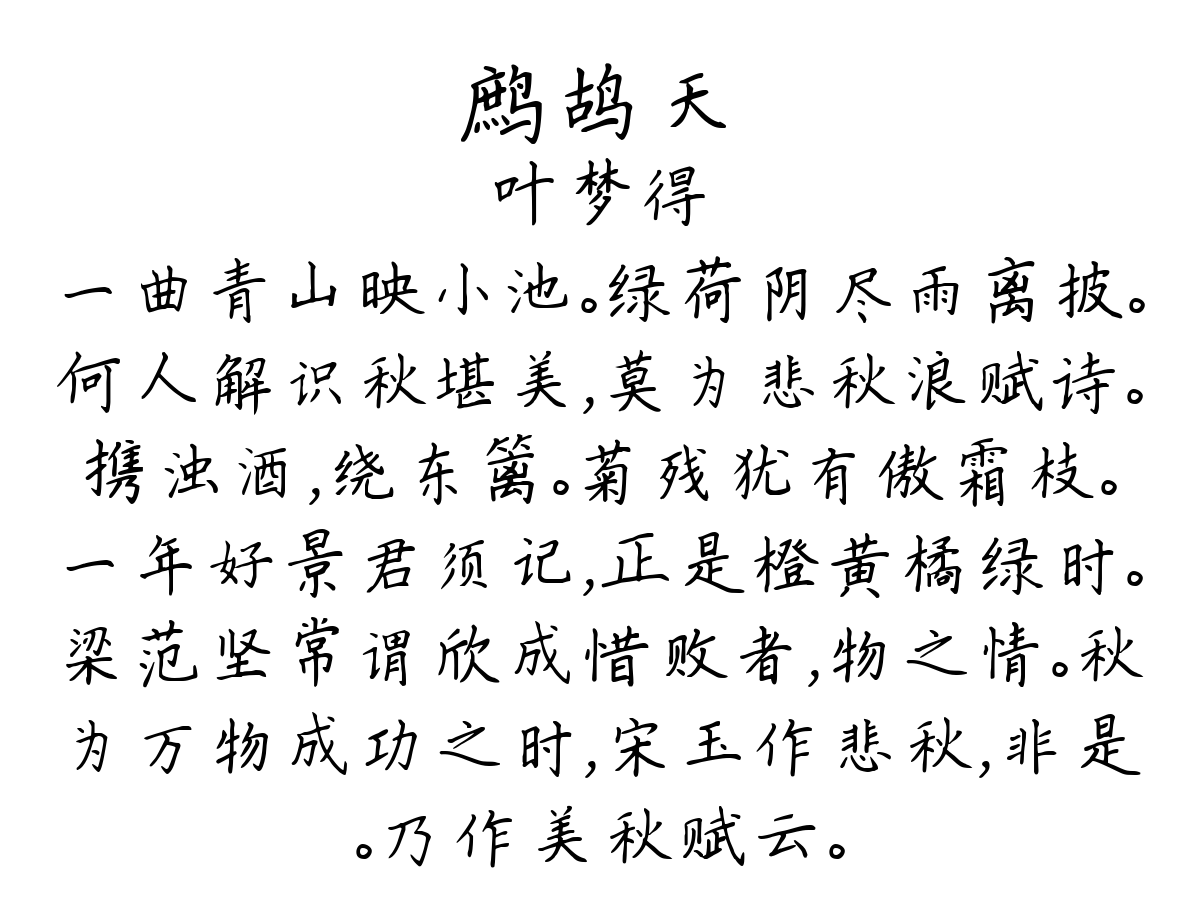 鹧鸪天
叶梦得
一曲青山映小池。绿荷阴尽雨离披。
何人解识秋堪美,莫为悲秋浪赋诗。
携浊酒,绕东篱。菊残犹有傲霜枝。
一年好景君须记,正是橙黄橘绿时。
梁范坚常谓欣成惜败者,物之情。秋
为万物成功之时,宋玉作悲秋,非是
。乃作美秋赋云。